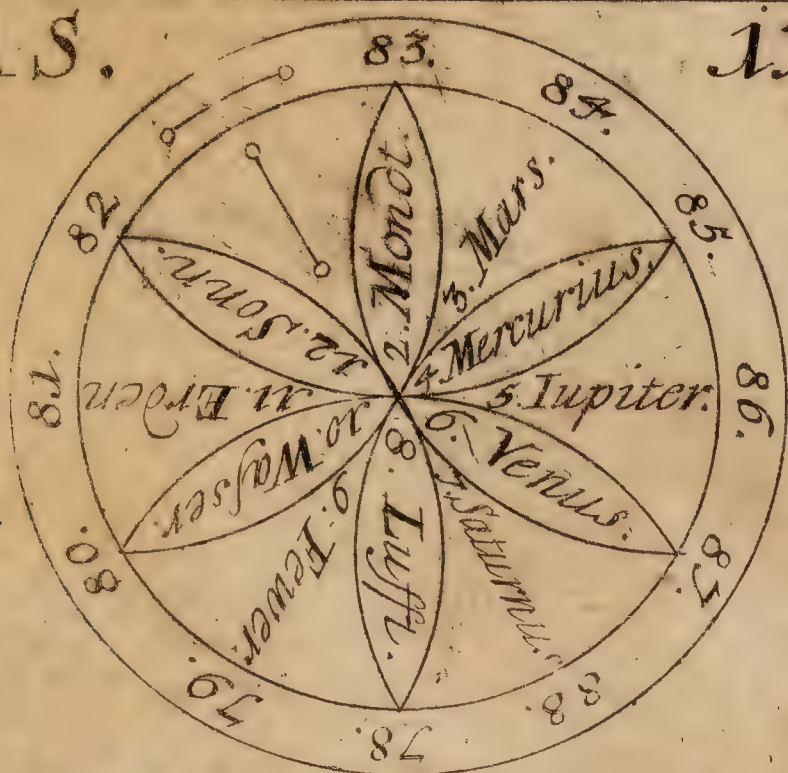 83.
84.
85.
86.
87.
88.
78.
79.
80.
81.
82
2. Mondt.
3. Mars.
4. Mercurius.
5. Iupiter.
6. Venus.
7. Saturnus.
8. Lufft.
9. Fewer.
10. Waſser.
11. Erden
12. Sonn.